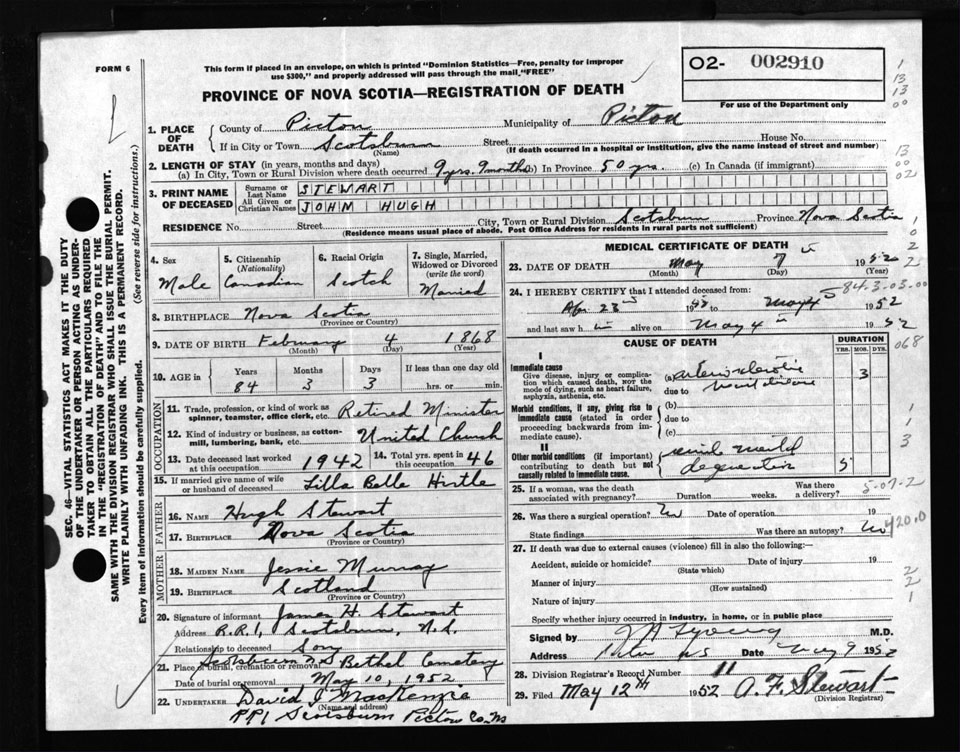 FORM 6
This form if placed in an envelope, on which is printed "Dominion Statistics—Free, penalty for improper
use $300," and properly addressed will pass through the mail "FREE"
O2- 002910
For use of the Department only
PROVINCE OF NOVA SCOTIA—REGISTRATION OF DEATH
1. PLACE OF DEATH
County of Pictou Municipality of Pictou
If in City or Town Scotsburn Street House No.
(Name) (If death occurred in a hospital or institution, give the name instead of street and number)
2. LENGTH OF STAY (in years, months and days)
(a) In City, Town or Rural Division where death occurred 9 yrs. 9 months (b) In Province 50 yrs. (c) In Canada (if immigrant)
3. PRINT NAME OF DECEASED
Surname or Last Name STEWART
All Given or Christian Names JOHN HUGH
RESIDENCE No. Street City, Town or Rural Division Scotsburn Province Nova Scotia
(Residence means usual place of abode. Post Office Address for residents in rural parts not sufficient)
4. Sex
Male
5. Citizenship
(Nationality)
Canadian
6. Racial Origin
Scotch
7. Single, Married, Widowed or Divorced
(write the word)
Married
8. BIRTHPLACE Nova Scotia
(Province or Country)
9. DATE OF BIRTH February 4 1868
(Month) (Day) (Year)
10. AGE in
Years Months Days If less than one day old
84 3 3 hrs. or min.
OCCUPATION
11. Trade, profession, or kind of work as spinner, teamster, office clerk, etc. Retired Minister
12. Kind of industry or business, as cotton-mill, lumbering, bank, etc. United Church
13. Date deceased last worked at this occupation 1942
14. Total yrs. spent in this occupation 46
15. If married give name of wife or husband of deceased Lilla Belle Hirtle
FATHER
16. NAME Hugh Stewart
17. BIRTHPLACE Nova Scotia
(Province or Country)
MOTHER
18. MAIDEN NAME Jessie Murray
19. BIRTHPLACE Scotland
(Province or Country)
20. Signature of informant James H. Stewart
Address R.R.1, Scotsburn, N.S.
Relationship to deceased Son
21. Place of burial, cremation or removal Scotsburn NS Bethel Cemetery
Date of burial or removal May 10, 1952
22. UNDERTAKER David J. MacKenzie
(Name and address)
RR1 Scotsburn Pictou Co. NS
MEDICAL CERTIFICATE OF DEATH
23. DATE OF DEATH May 7 1952
(Month) (Day) (Year)
24. I HEREBY CERTIFY that I attended deceased from:
Apr 23 19 May 4 1952
and last saw h alive on May 4 1952
84-3-03-00
CAUSE OF DEATH
DURATION
YRS. MOS. DYS.
068
I
Immediate cause
Give disease, injury or complication which caused death, NOT the mode of dying, such as heart failure, asphyxia, asthenia, etc.
(a) arteriosclerotic 3
due to heart disease
Morbid conditions, if any, giving rise to immediate cause (stated in order proceeding backwards from immediate cause).
(b)
due to
(c)
II
Other morbid conditions (if important) contributing to death but not causally related to immediate cause.
senile mental 5
25. If a woman, was the death associated with pregnancy? Duration weeks. Was there a delivery?
5-07-2
26. Was there a surgical operation? No Date of operation 19
State findings Was there an autopsy? No
420.0
27. If death was due to external causes (violence) fill in also the following:—
Accident, suicide or homicide? Date of injury 19
(State which)
Manner of injury
(How sustained)
Nature of injury
Specify whether injury occurred in industry, in home, or in public place
Signed by M.D.
Address NS Date May 9 1952
28. Division Registrar's Record Number 11
29. Filed May 12TH 1952 A. F. Stewart
(Division Registrar)
1
13
13
00
13
00
02
1
0
2
2
1
3
2
2
1
SEC. 46—VITAL STATISTICS ACT MAKES IT THE DUTY
OF THE UNDERTAKER OR PERSON ACTING AS UNDER-
TAKER TO OBTAIN ALL THE PARTICULARS REQUIRED
IN THE "REGISTRATION OF DEATH" AND TO FILE THE
SAME WITH THE DIVISION REGISTRAR WHO SHALL ISSUE THE BURIAL PERMIT.
WRITE PLAINLY WITH UNFADING INK. THIS IS A PERMANENT RECORD.
Every item of information should be carefully supplied. (See reverse side for instructions.)